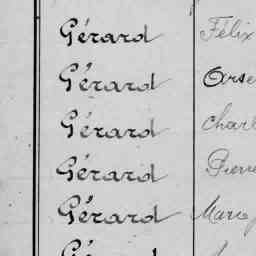 Gérard Félix
Gérard Arse
Gérard Charl
Gérard Pierre
Gérard Marie
Gérard